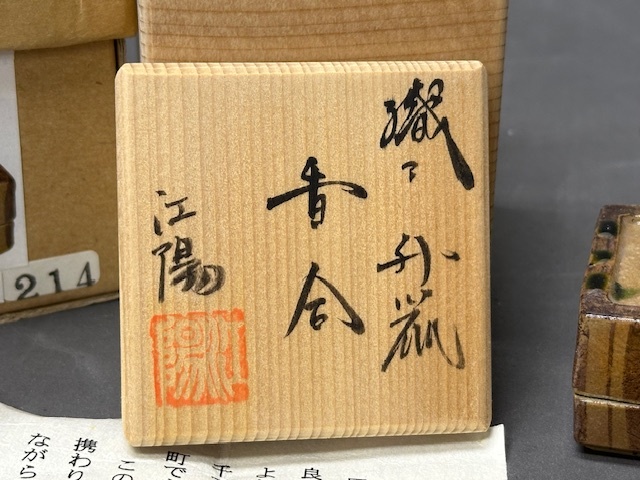 織部 升鼠
香合
江陽
214
良
よ
千
町で
この
携わり
ながら